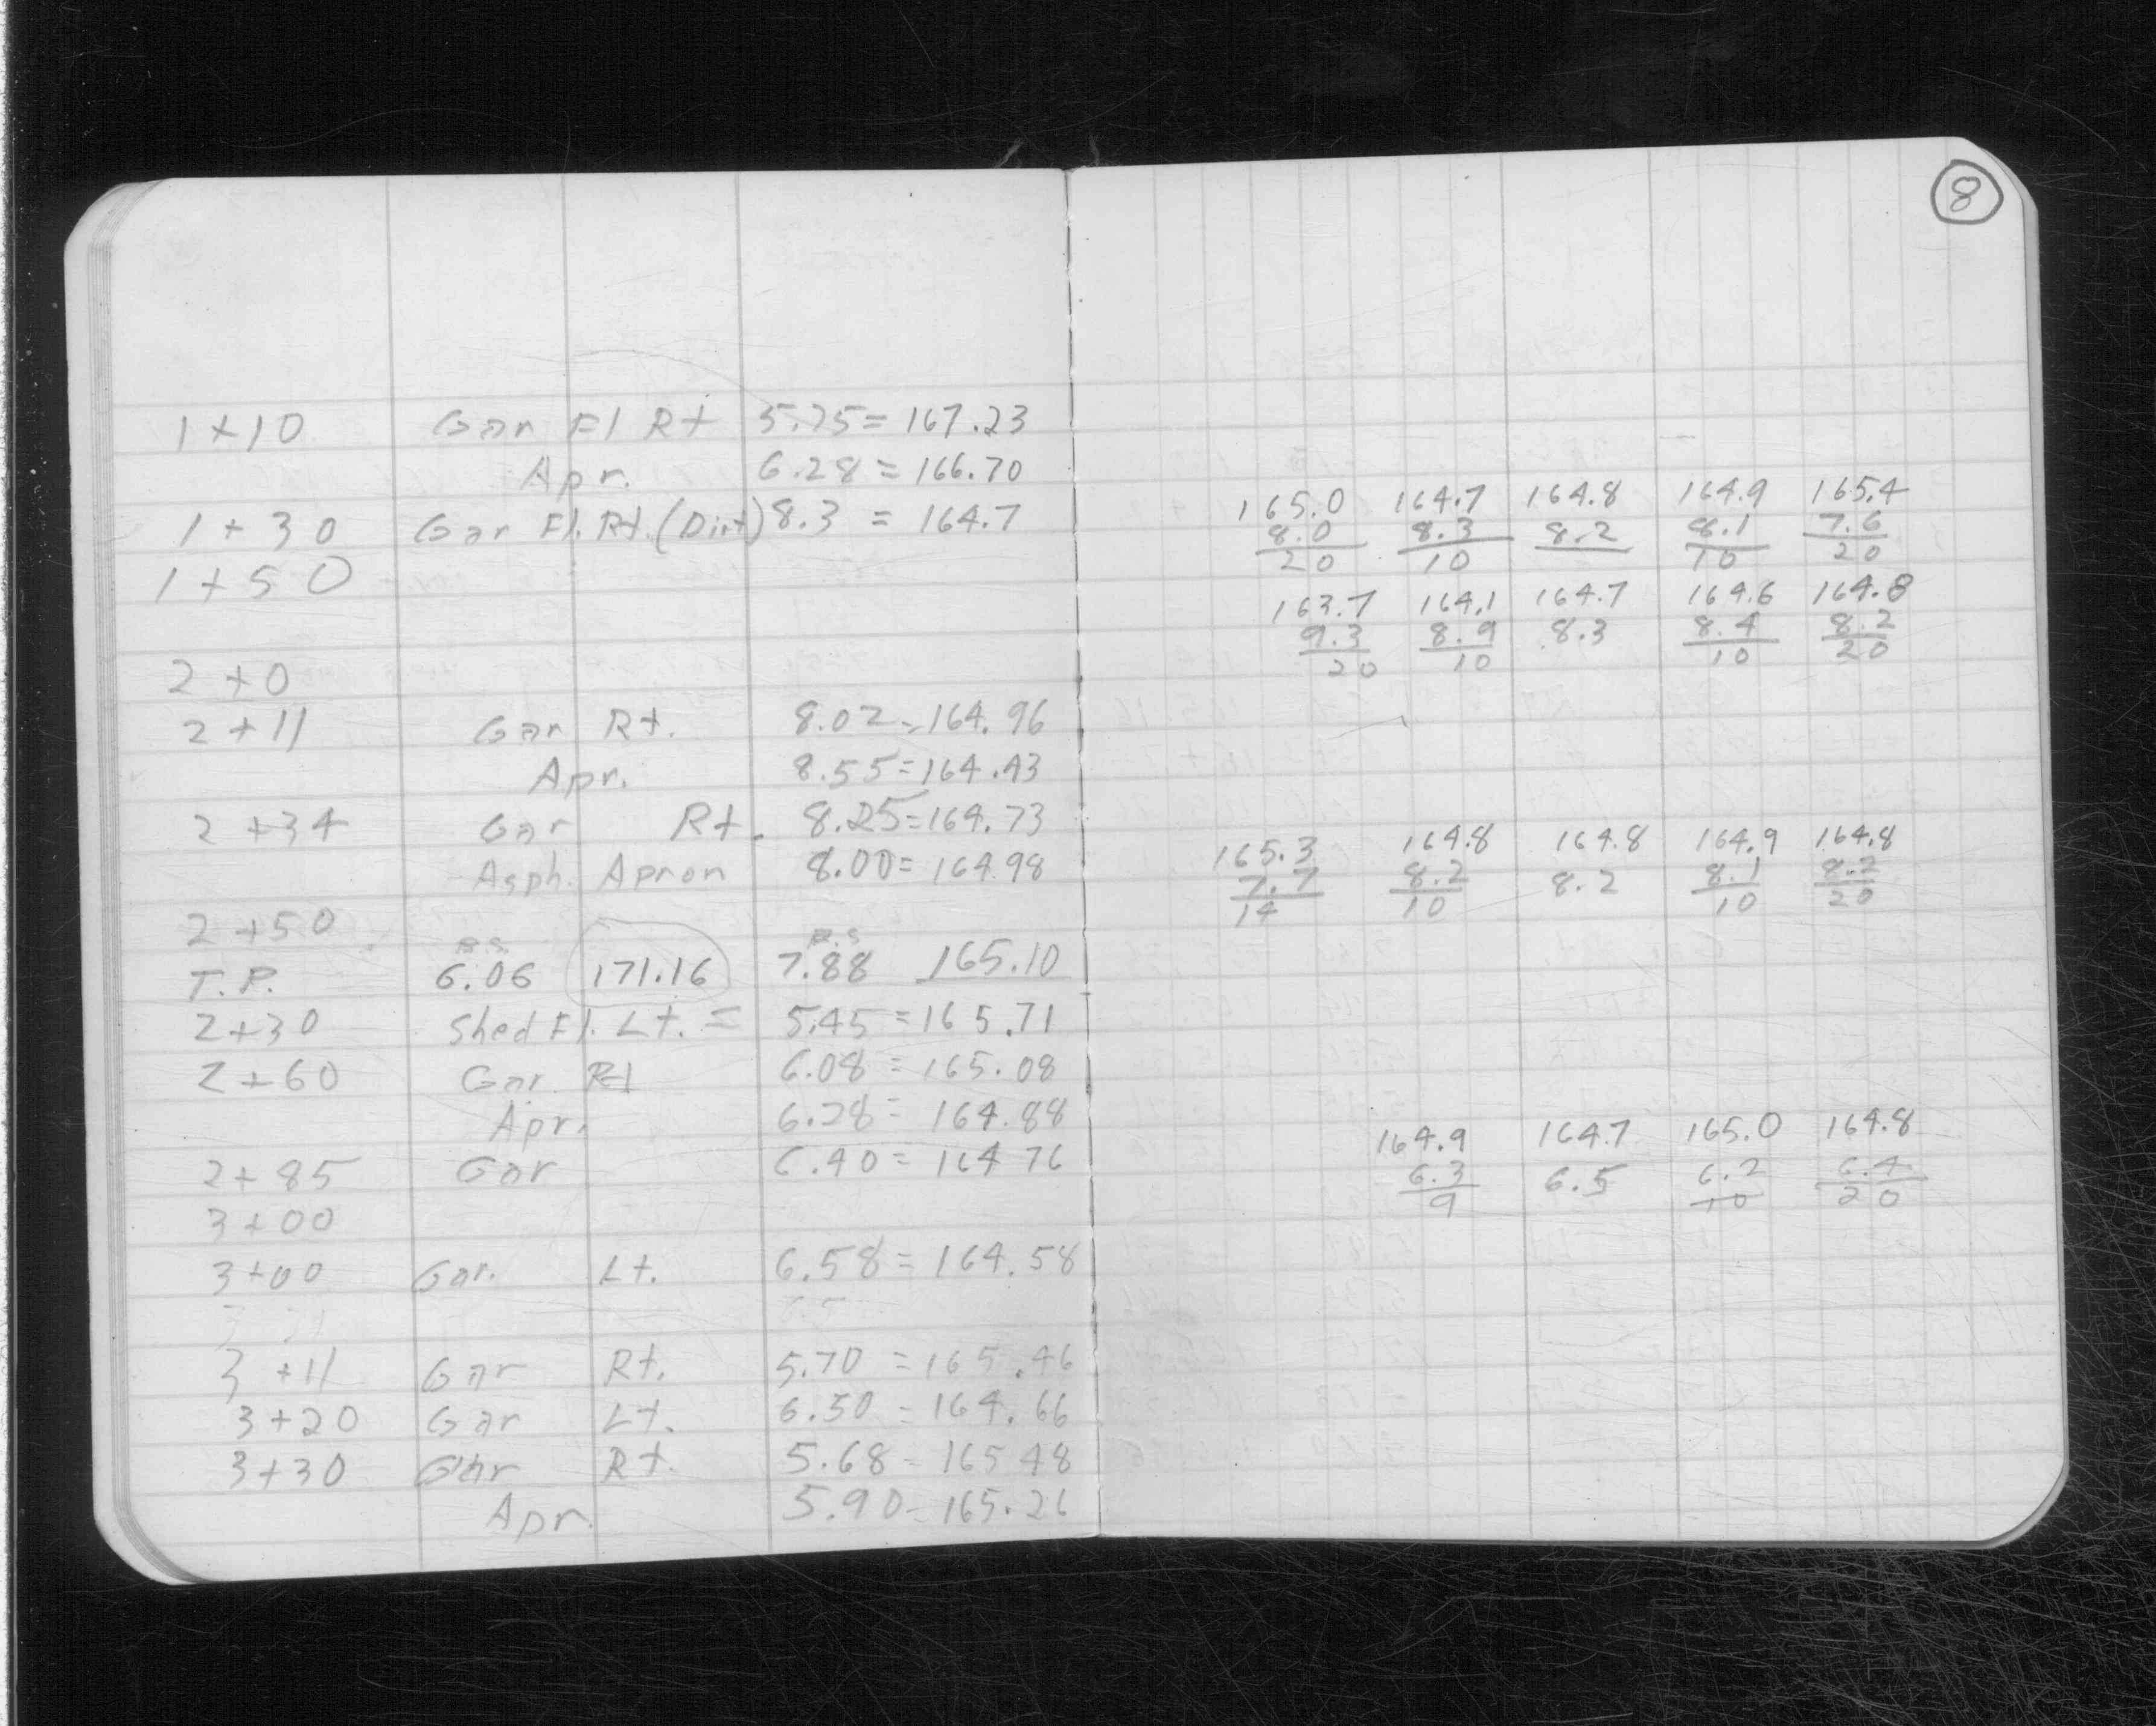 1+10 Gar Fl Rt 5.75= 167.23
Apr. 6.28 = 166.70
1+30 Gar Fl. Rt. (Dirt) 8.3 = 164.7
1+50
2+0
2+11 Gar Rt. 8.02 = 164.96
Apr. 8.55 = 164.43
2+34 Gar Rt. 8.25 = 164.73
Asph. Apron 8.00 = 164.98
2+50
B.S. F.S
T.P. 6.06 171.16 7.88 165.10
2+30 Shed Fl. Lt. = 5.45 = 165.71
2+60 Gar. Rt 6.08 = 165.08
Apr. 6.28 = 164.88
2+85 Gar 6.40 = 164 76
3+00
3+00 Gar. Lt. 6.58 = 164.58
3+11 Gar Rt. 5.70 = 165.46
3+20 Gar Lt. 6.50 = 164.66
3+30 Gar Rt. 5.68 = 165 48
Apr. 5.90 = 165.26
8
165.0 164.7 164.8 164.9 165.4
8.0 8.3 8.2 8.1 7.6
20 10 10 20
163.7 164.1 164.7 164.6 164.8
9.3 8.9 8.3 8.4 8.2
20 10 10 20
165.3 164.8 164.8 164.9 164.8
7.7 8.2 8.2 8.1 8.2
14 10 10 20
164.9 164.7 165.0 164.8
6.3 6.5 6.2 6.4
9 10 20